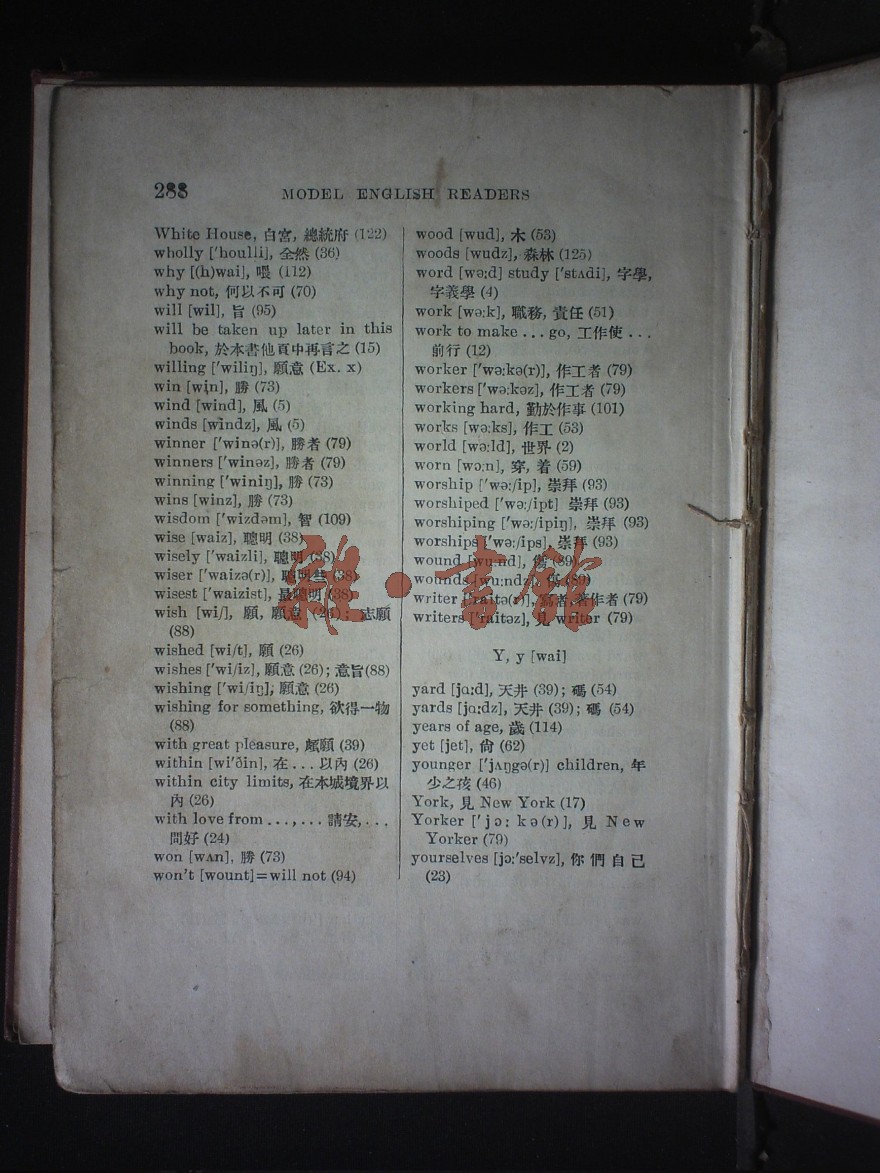 288
MODEL ENGLISH READERS
White House, 白宮, 總統府 (122)
wholly ['houlli], 全然 (36)
why [(h)wai], 喂 (112)
why not, 何以不可 (70)
will [wil], 旨 (95)
will be taken up later in this
book, 於本書他頁中再言之 (15)
willing ['wiliŋ], 願意 (Ex. x)
win [win], 勝 (73)
wind [wind], 風 (5)
winds [windz], 風 (5)
winner ['winə(r)], 勝者 (79)
winners ['winəz], 勝者 (79)
winning ['winiŋ], 勝 (73)
wins [winz], 勝 (73)
wisdom ['wizdəm], 智 (109)
wise [waiz], 聰明 (38)
wisely ['waizli], 聰明 (38)
wiser ['waizə(r)], 聰明些 (38)
wisest ['waizist], 最聰明 (38)
wish [wiʃ], 願, 願意 (26); 志願
(88)
wished [wiʃt], 願 (26)
wishes ['wiʃiz], 願意 (26); 意旨(88)
wishing ['wiʃiŋ], 願意 (26)
wishing for something, 欲得一物
(88)
with great pleasure, 頗願 (39)
within [wi'ðin], 在...以內 (26)
within city limits, 在本城境界以
內 (26)
with love from ...,... 請安,...
問好 (24)
won [wʌn], 勝 (73)
won't [wount]=will not (94)
wood [wud], 木 (53)
woods [wudz], 森林 (125)
word [wə:d] study ['stʌdi], 字學,
字義學 (4)
work [wə:k], 職務, 責任 (51)
work to make ... go, 工作使 ...
前行 (12)
worker ['wə:kə(r)], 作工者 (79)
workers ['wə:kəz], 作工者 (79)
working hard, 勤於作事 (101)
works [wə:ks], 作工 (53)
world [wə:ld], 世界 (2)
worn [wɔ:n], 穿, 着 (59)
worship ['wə:ʃip], 崇拜 (93)
worshiped ['wə:ʃipt] 崇拜 (93)
worshiping ['wə:ʃipiŋ], 崇拜 (93)
worships ['wə:ʃips], 崇拜 (93)
wound [wu:nd], 傷 (89)
wounds [wu:ndz], 傷 (89)
writer ['raitə(r)], 寫者, 著作者 (79)
writers ['raitəz], 見 writer (79)
Y, y [wai]
yard [jɑ:d], 天井 (39); 碼 (54)
yards [jɑ:dz], 天井 (39); 碼 (54)
years of age, 歲 (114)
yet [jet], 尙 (62)
younger ['jʌŋgə(r)] children, 年
少之孩 (46)
York, 見 New York (17)
Yorker ['jɔ:kə(r)], 見 New
Yorker (79)
yourselves [jɔ:'selvz], 你們自己
(23)
雅·書館